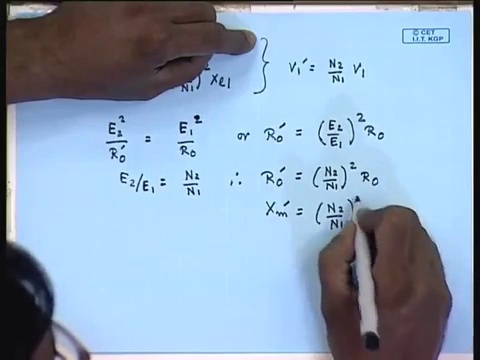 © CET
I.I.T. KGP
N1)² Xe1 } V1' = N2/N1 V1
E2²/R0' = E1²/R0 or R0' = (E2/E1)² R0
E2/E1 = N2/N1 ∴ R0' = (N2/N1)² R0
Xm' = (N2/N1)²